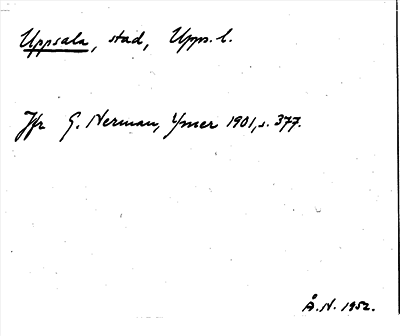 Uppsala, stad, Upps. l.
Jfr G. Nerman, Ymer 1901, s. 377.
Å. N. 1952.